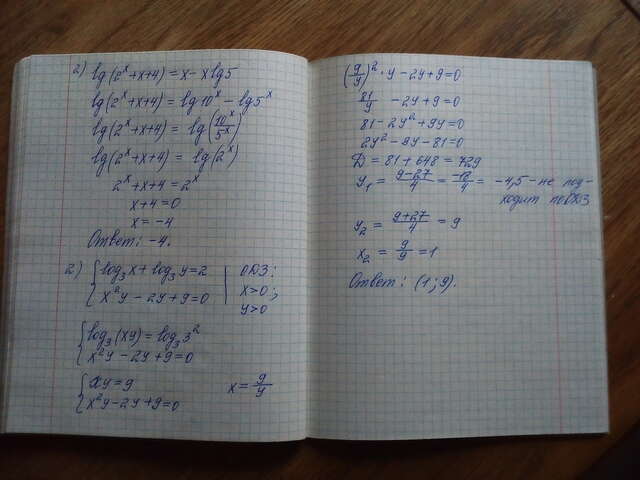 2) lg(2^x+x+4) = x-x lg5
lg(2^x+x+4) = lg10^x - lg5^x
lg(2^x+x+4) = lg(10^x/5^x)
lg(2^x+x+4) = lg(2^x)
2^x+x+4 = 2^x
x+4 = 0
x = -4
Ответ: -4.
2) { log₃x + log₃y = 2 | ОДЗ:
x²y - 2y + 9 = 0 | x>0;
y>0
{ log₃(xy) = log₃3²
x²y - 2y + 9 = 0
{ xy = 9 x = 9/y
x²y - 2y + 9 = 0
(9/y)² · y - 2y + 9 = 0
81/y - 2y + 9 = 0
81 - 2y² + 9y = 0
2y² - 9y - 81 = 0
D = 81 + 648 = 729
y₁ = (9-27)/4 = -18/4 = -4,5 - не под-
ходит по ОДЗ
y₂ = (9+27)/4 = 9
x₂ = 9/9 = 1
Ответ: (1; 9).